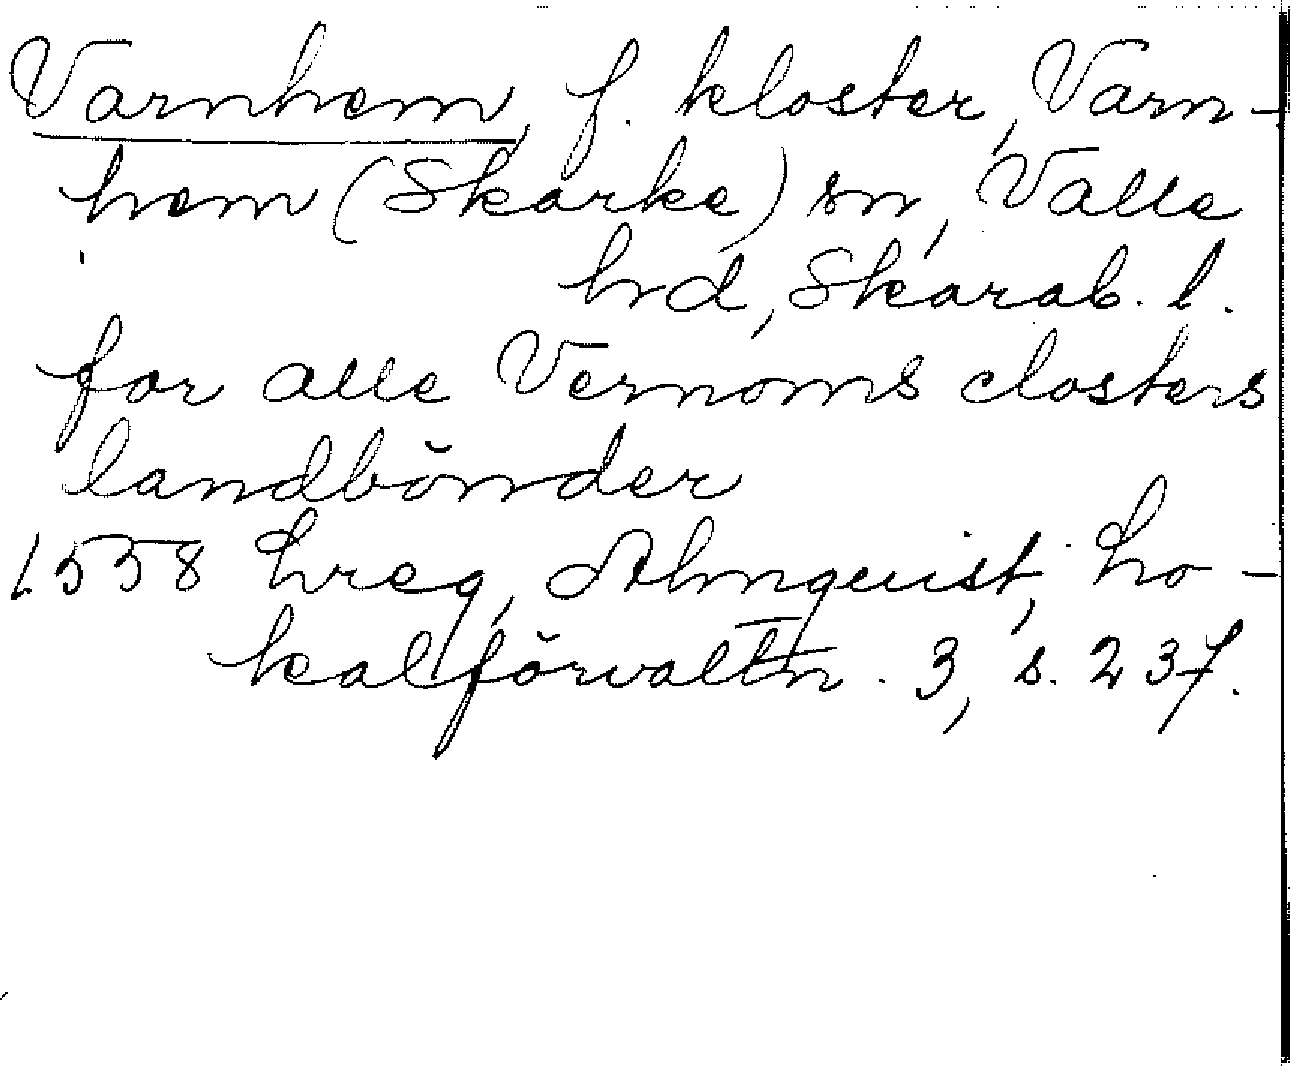 Varnhem, f. kloster, Varn-
hem (Skarke) sn, Valle
hrd, Skarab. l.
for alle Vernoms closters
landbönder
1558 hreg, Almquist, Lo-
kalförvaltn. 3, s. 237.